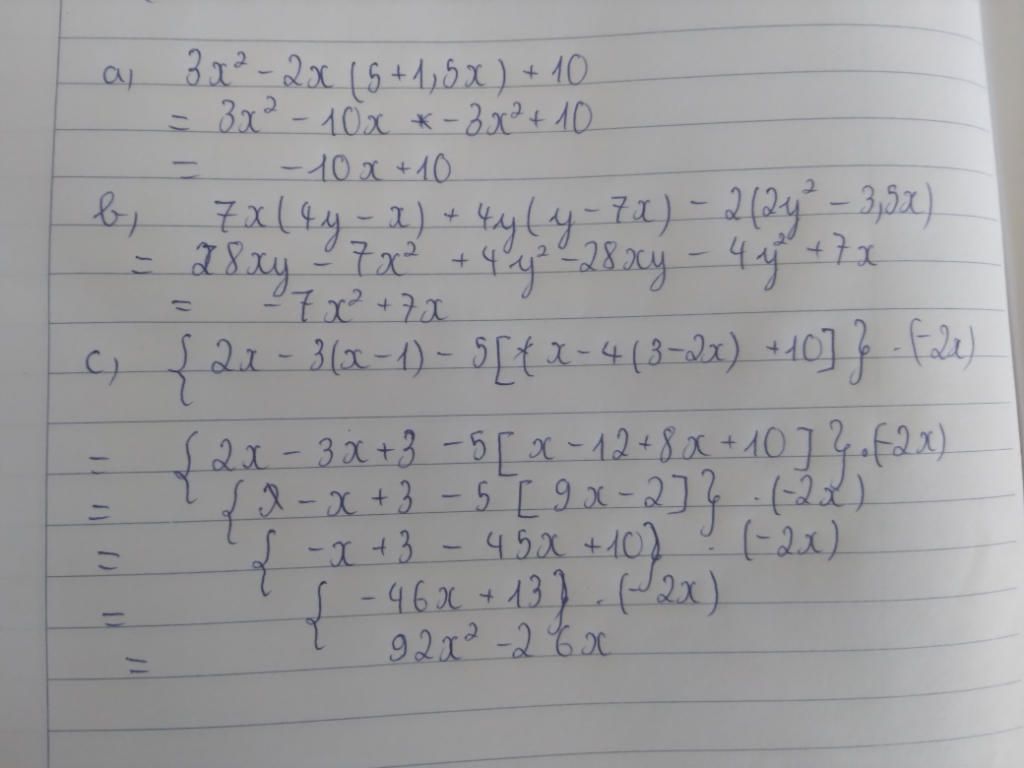 a, 3x² - 2x (5 + 1,5x) + 10
= 3x² - 10x - 3x² + 10
= - 10x + 10
b, 7x (4y - x) + 4y (y - 7x) - 2 (2y² - 3,5x)
= 28xy - 7x² + 4y² - 28xy - 4y² + 7x
= - 7x² + 7x
c, { 2x - 3(x - 1) - 5 [ x - 4 (3 - 2x) + 10 ] } . (-2x)
= { 2x - 3x + 3 - 5 [ x - 12 + 8x + 10 ] } . (-2x)
= { - x + 3 - 5 [ 9x - 2 ] } . (-2x)
= { -x + 3 - 45x + 10 } . (-2x)
= { - 46x + 13 } . (-2x)
= 92x² - 26x